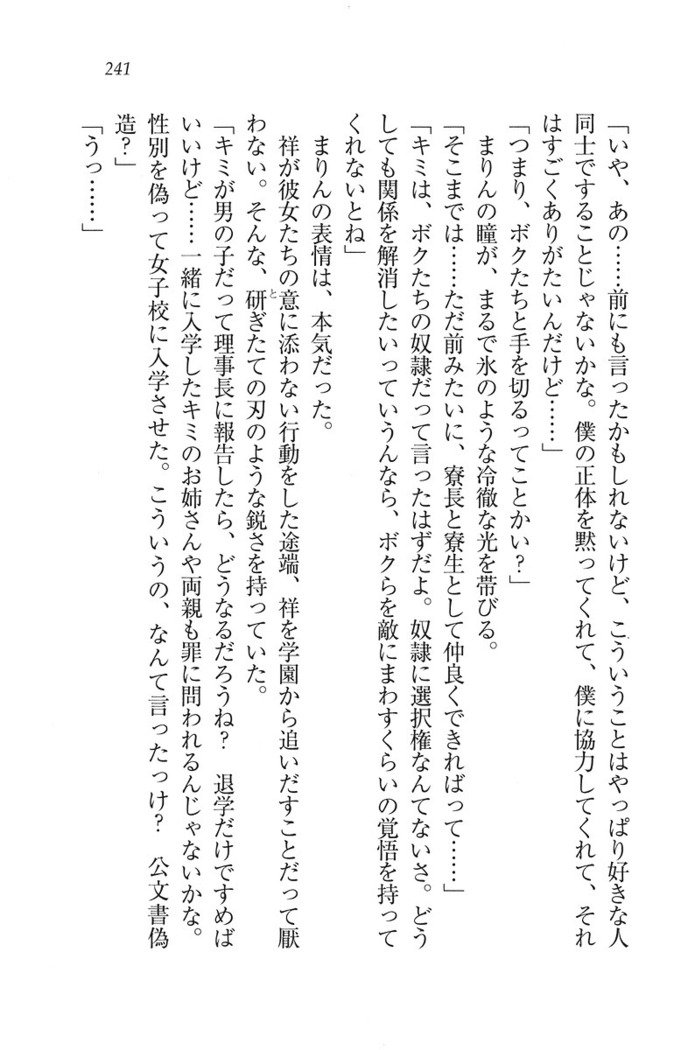 241
「いや、あの……前にも言ったかもしれないけど、こういうことはやっぱり好きな人
同士ですることじゃないかな。僕の正体を黙ってくれて、僕に協力してくれて、それ
はすごくありがたいんだけど……」
「つまり、ボクたちと手を切るってことかい？」
まりんの瞳が、まるで氷のような冷徹な光を帯びる。
「そこまでは……ただ前みたいに、寮長と寮生として仲良くできればって……」
「キミは、ボクたちの奴隷だって言ったはずだよ。奴隷に選択権なんてないさ。どう
しても関係を解消したいっていうんなら、ボクらを敵にまわすくらいの覚悟を持って
くれないとね」
まりんの表情は、本気だった。
祥が彼女たちの意に添わない行動をした途端、祥を学園から追いだすことだって厭
わない。そんな、研ぎたての刃のような鋭さを持っていた。
「キミが男の子だって理事長に報告したら、どうなるだろうね？　退学だけですめば
いいけど……一緒に入学したキミのお姉さんや両親も罪に問われるんじゃないかな。
性別を偽って女子校に入学させた。こういうの、なんて言ったっけ？　公文書偽
造？」
「うっ……」